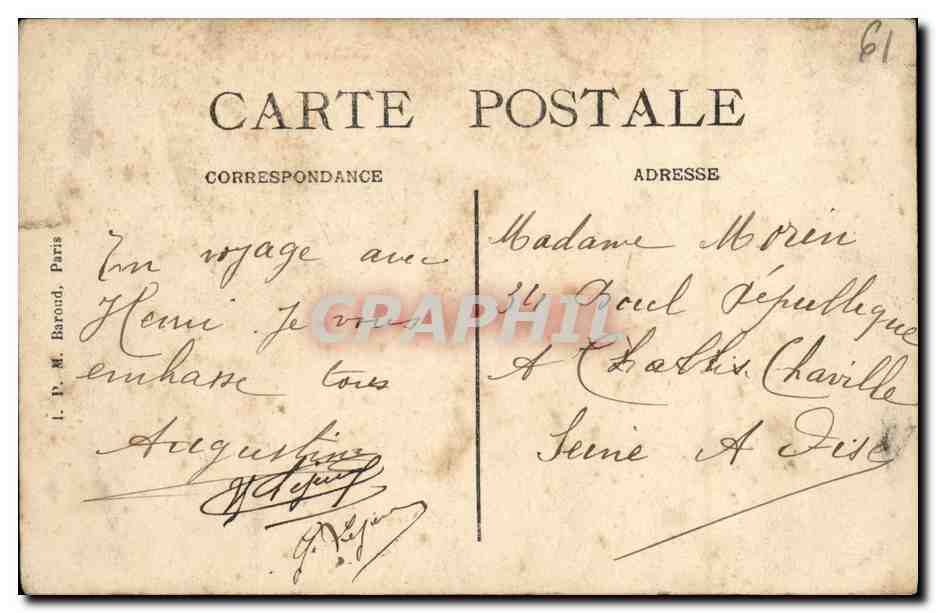 61
CARTE POSTALE
CORRESPONDANCE
ADRESSE
I. P. M. Baroud, Paris
En voyage avec
Henri Je vous
embrasse tous
Augustine
Madame Morin
34 Boul République
A Chaville
Seine A Oise
GRAPHIL